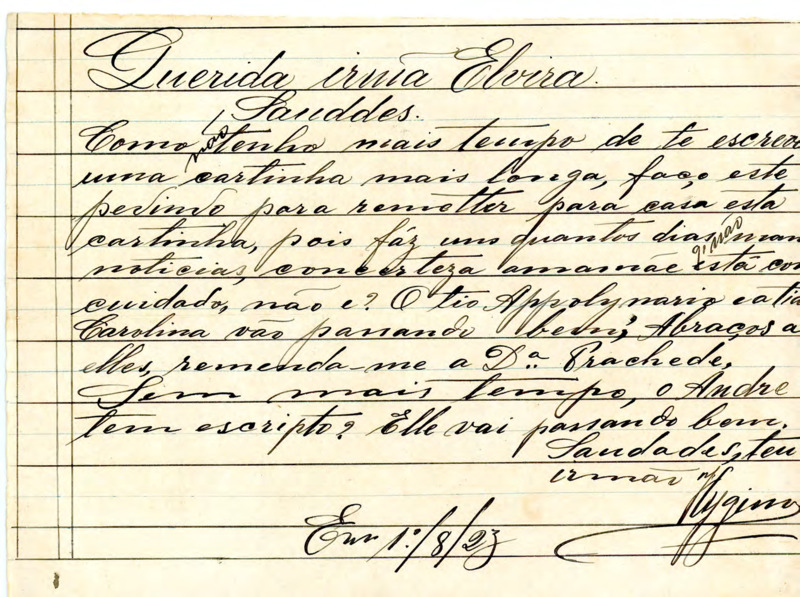 Querida irmã Elvira.
Sauddes.
Como não tenho mais tempo de te escrev
uma cartinha mais longa, faço este
pedindo para remetter para casa esta
cartinha, pois fáz uns quantos dias q' não man
noticias, concerteza amamãe está com
cuidado, não e? O tio Appolynario e a tia
Carolina vão passando bem; Abraços a
elles, remenda-me a Dª. Prachede.
Sem mais tempo, o Andre
tem escripto? Elle vai passando bem.
Saudades, teu
irmão
Hygino
Em 1º/8/23